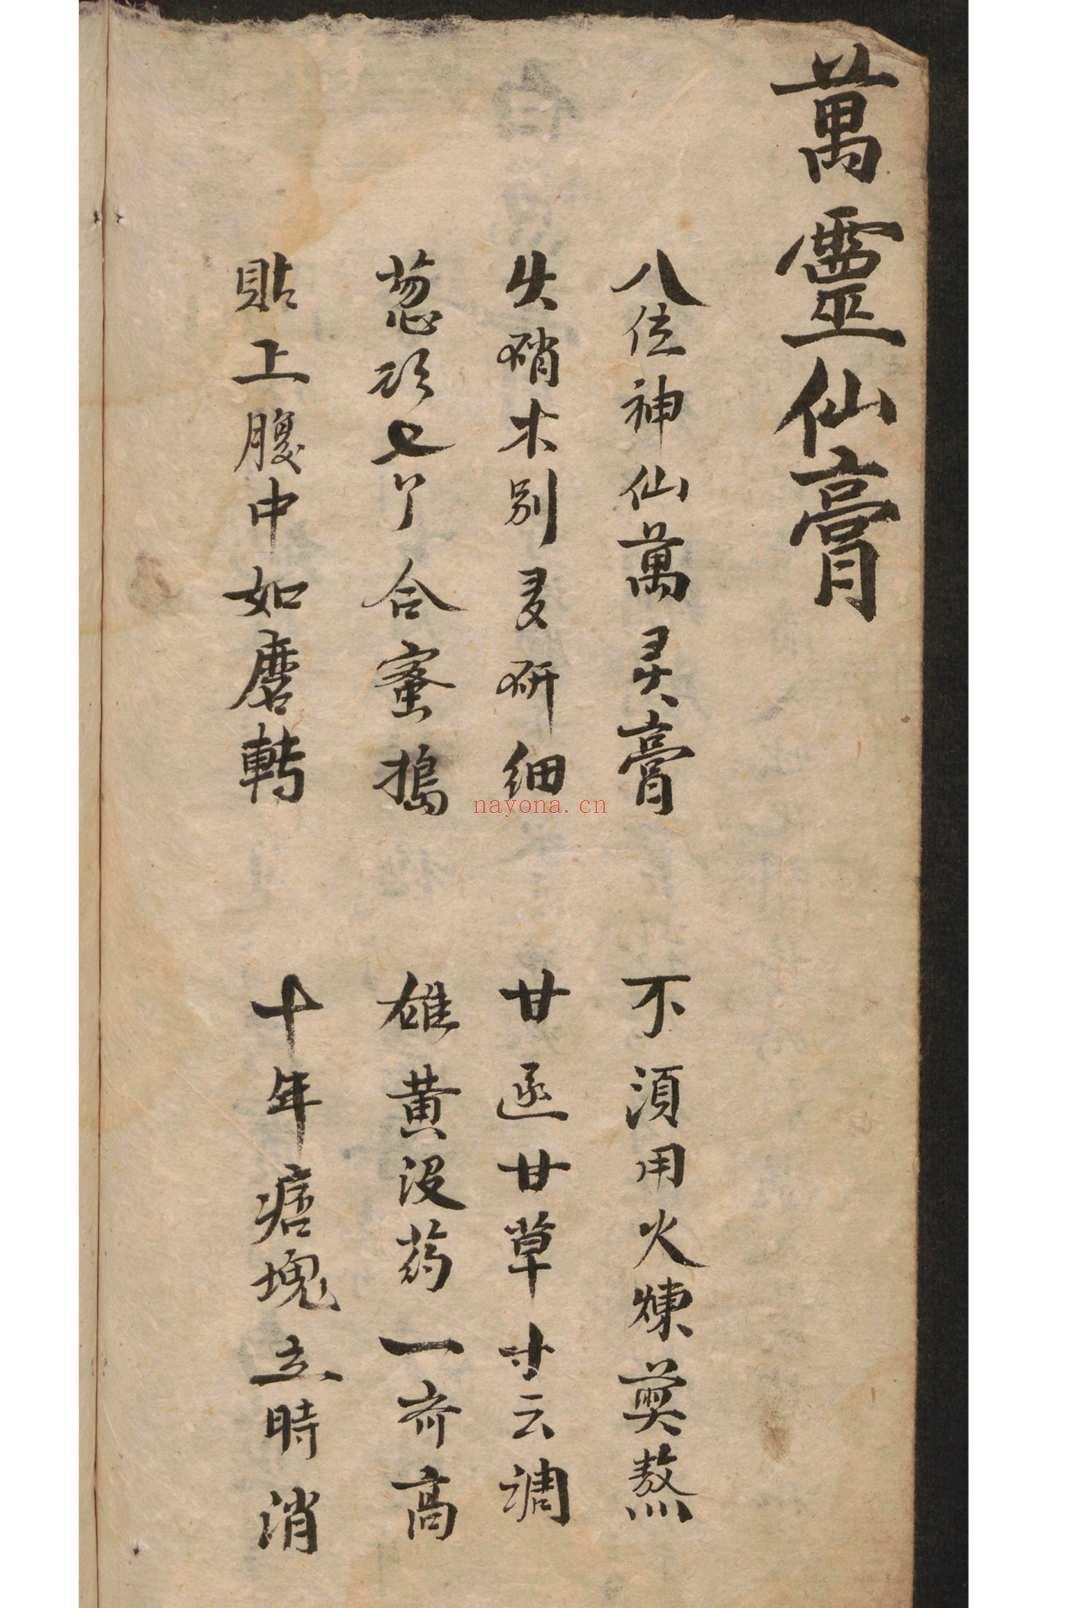 萬靈仙膏
八位神仙萬灵膏　不須用火煉煎熬
硝木别研细　甘遂甘草寸云調
葱頭七个合蜜搗　雄黄没药一齐高
貼上腹中如磨轉　十年痞塊立時消
nayona.cn